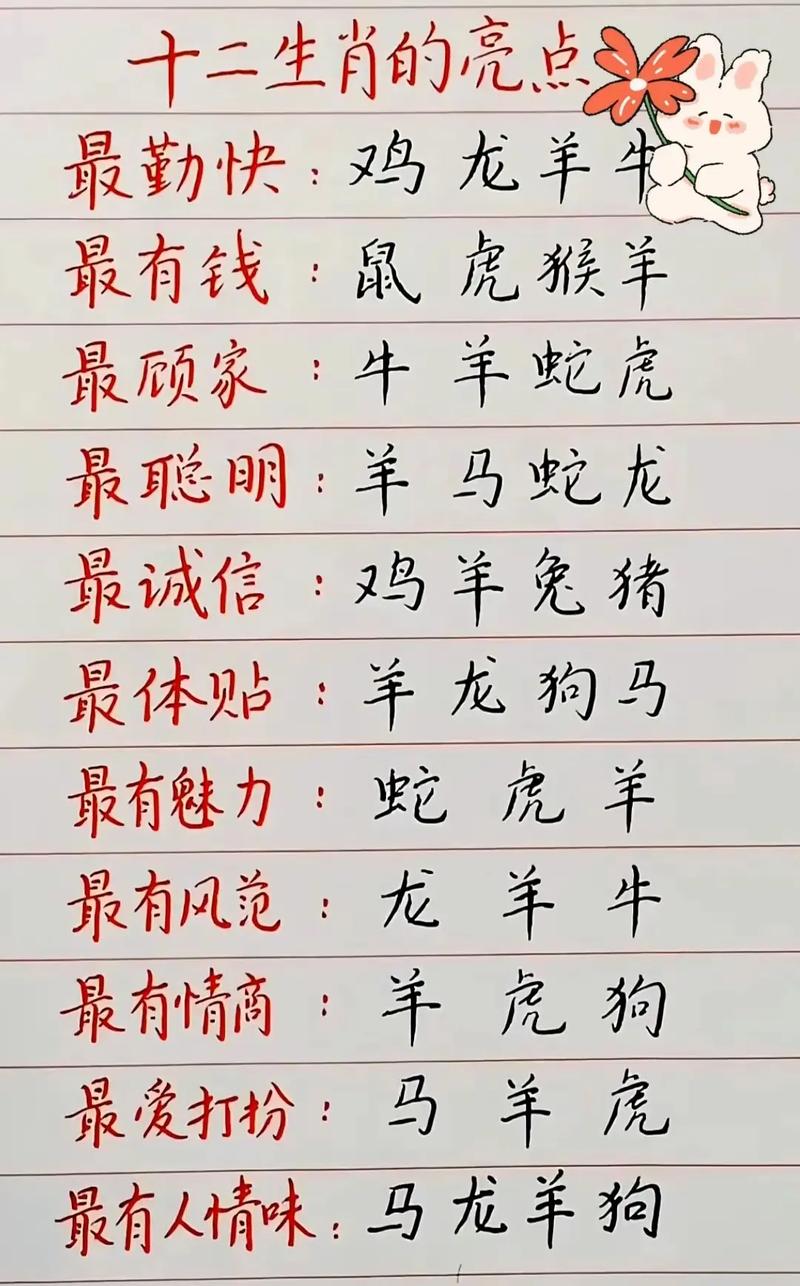 十二生肖的亮点
最勤快：鸡 龙 羊 牛
最有钱：鼠 虎 猴 羊
最顾家：牛 羊 蛇 虎
最聪明：羊 马 蛇 龙
最诚信：鸡 羊 兔 猪
最体贴：羊 龙 狗 马
最有魅力：蛇 虎 羊
最有风范：龙 羊 牛
最有情商：羊 虎 狗
最爱打扮：马 羊 虎
最有人情味：马 龙 羊 狗